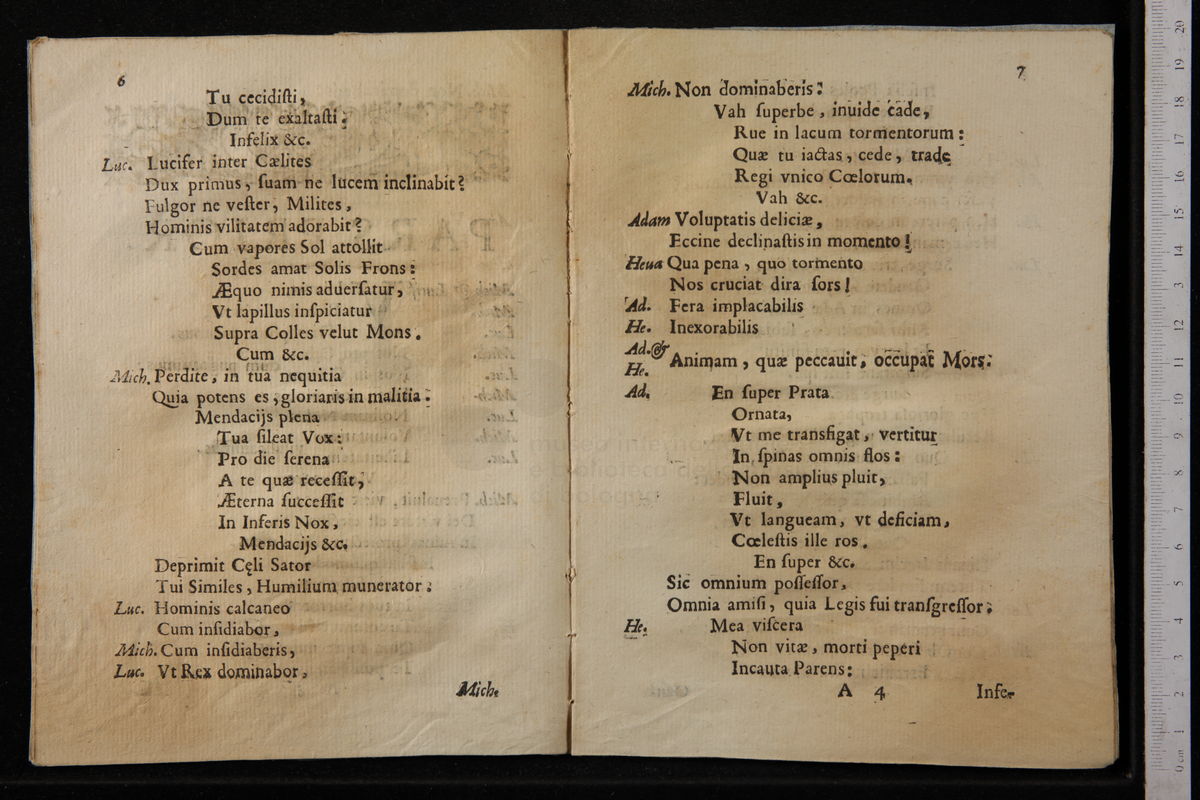 6
Tu cecidiſti,
Dum te exaltaſti.
Infelix &c.
Luc. Lucifer inter Cælites
Dux primus, ſuam ne lucem inclinabit?
Fulgor ne veſter, Milites,
Hominis vilitatem adorabit?
Cum vapores Sol attollit
Sordes amat Solis Frons:
Æquo nimis aduerſatur,
Vt lapillus inſpiciatur
Supra Colles velut Mons.
Cum &c.
Mich. Perdite, in tua nequitia
Quia potens es, gloriaris in malitia:
Mendacijs plena
Tua ſileat Vox:
Pro die ſerena
A te quæ receſſit,
Æterna ſucceſſit
In Inferis Nox,
Mendacijs &c.
Deprimit Cęli Sator
Tui Similes, Humilium munerator:
Luc. Hominis calcaneo
Cum inſidiabor,
Mich. Cum inſidiaberis,
Luc. Vt Rex dominabor,
Mich.
7
Mich. Non dominaberis:
Vah ſuperbe, inuide cade,
Rue in lacum tormentorum:
Quæ tu iactas, cede, trade
Regi vnico Cœlorum.
Vah &c.
Adam Voluptatis deliciæ,
Eccine declinaſtis in momento!
Heua Qua pena, quo tormento
Nos cruciat dira ſors!
Ad. Fera implacabilis
He. Inexorabilis
Ad. & He. Animam, quæ peccauit, occupat Mors:
Ad. En ſuper Prata
Ornata,
Vt me transfigat, vertitur
In ſpinas omnis flos:
Non amplius pluit,
Fluit,
Vt langueam, vt deficiam,
Cœleſtis ille ros.
En ſuper &c.
Sic omnium poſſeſſor,
Omnia amiſi, quia Legis fui tranſgreſſor;
He. Mea viſcera
Non vitæ, morti peperi
Incauta Parens:
A 4 Infe-